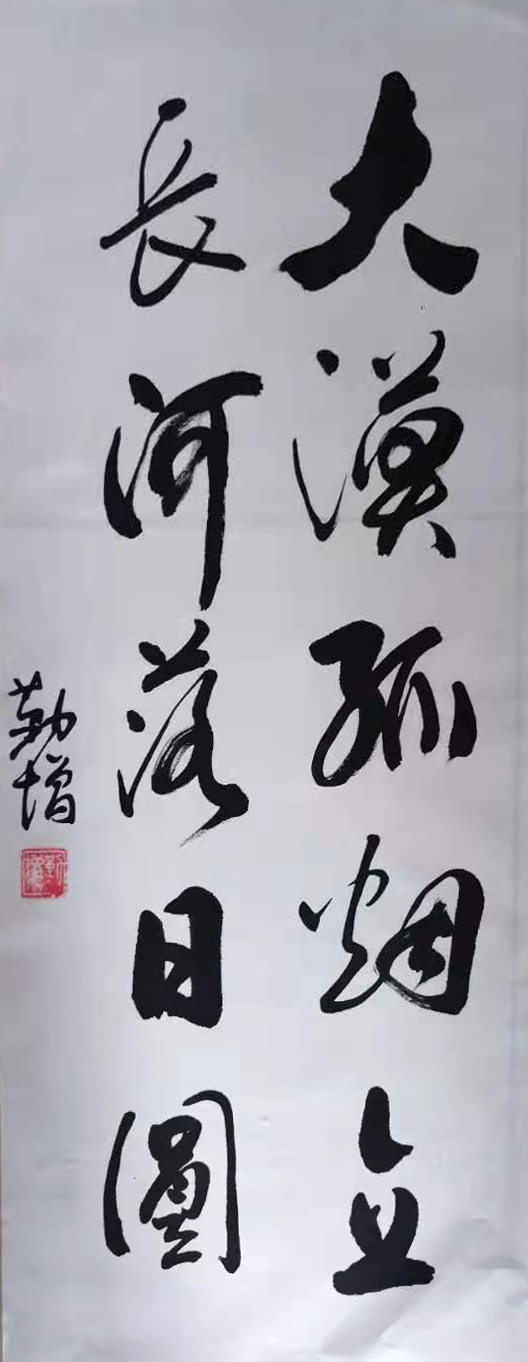 大漠孤烟直
長河落日圓
勤增